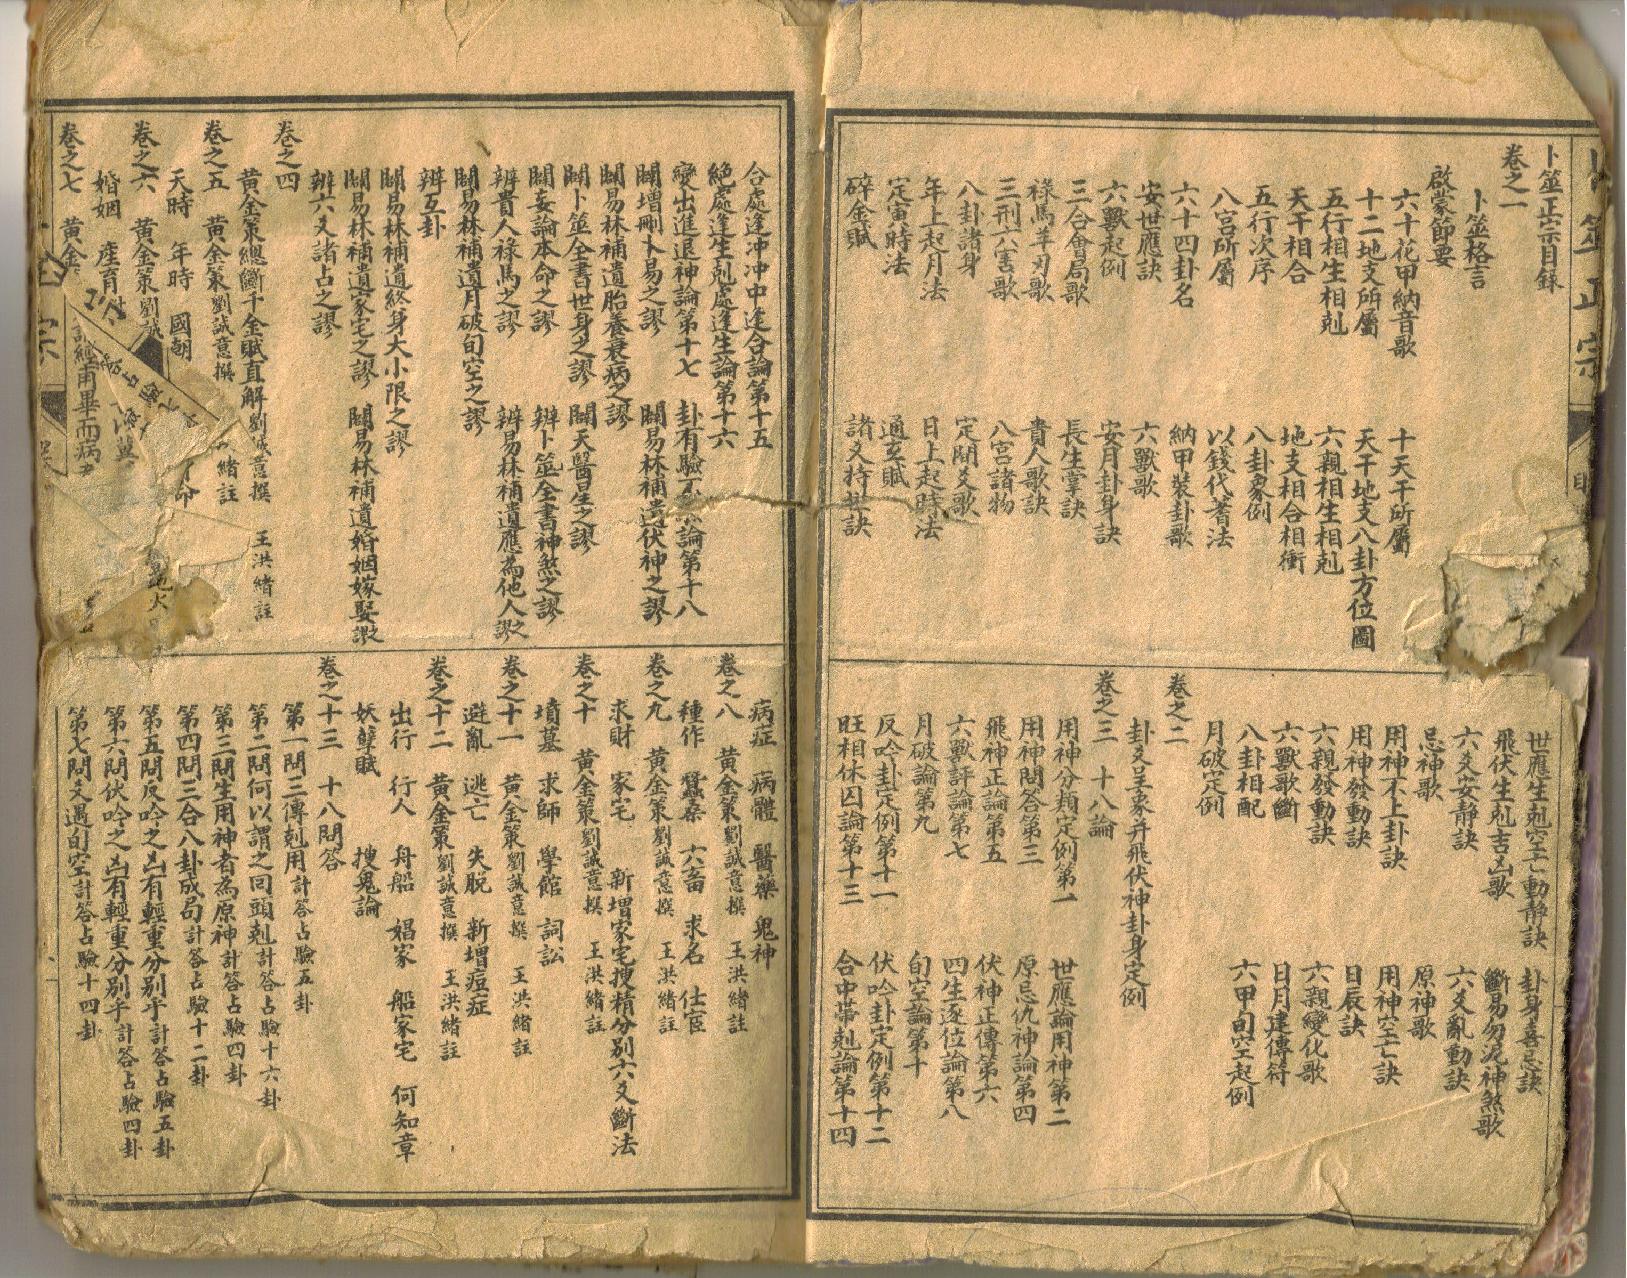 卜筮正宗
卜筮正宗目錄
卷之一
卜筮格言
啟蒙節要
六十花甲納音歌 十天干所屬
十二地支所屬 天干地支八卦方位圖
五行相生相剋 六親相生相剋
天干相合 地支相合相衝
五行次序 八卦象例
八宮所屬 以錢代蓍法
六十四卦名 納甲裝卦歌
安世應訣 六獸歌
六獸起例 安月卦身訣
三合會局歌 長生掌訣
祿馬羊刃歌 貴人歌訣
三刑六害歌 八宮諸物
八卦諸身 定間爻歌
年上起月法 日上起時法
定寅時法 通玄賦
碎金賦 諸爻持世訣
世應生剋空亡動靜訣 卦身喜忌訣
飛伏生剋吉凶歌 斷易勿泥神煞歌
六爻安靜訣 六爻亂動訣
忌神歌 原神歌
用神不上卦訣 用神空亡訣
用神發動訣 日辰訣
六親發動訣 六親變化歌
六獸歌斷 日月建傳符
八卦相配 六甲旬空起例
月破定例
卷之二
卦爻呈象并飛伏神卦身定例
卷之三 十八論
用神分類定例第一 世應論用神第二
用神問答第三 原忌仇神論第四
飛神正論第五 伏神正傳第六
六獸評論第七 四生逐位論第八
月破論第九 旬空論第十
反吟卦定例第十一 伏吟卦定例第十二
旺相休囚論第十三 合中帶剋論第十四
合處逢冲冲中逢合論第十五
絕處逢生剋處逢生論第十六
變出進退神論第十七 卦有驗不驗論第十八
闢增刪卜易之謬 闢易林補遺伏神之謬
闢易林補遺胎養衰病之謬
闢卜筮全書世身之謬 闢天醫星之謬
闢妄論本命之謬 辨卜筮全書神煞之謬
辨貴人祿馬之謬 辨易林補遺應為他人之謬
闢易林補遺月破旬空之謬
辨互卦
闢易林補遺終身大小限之謬
闢易林補遺家宅之謬 闢易林補遺婚姻嫁娶之謬
辨六爻諸占之謬
卷之四
黃金策總斷千金賦直解 劉誠意撰 王洪緒註
卷之五 黃金策 劉誠意撰 緒註
天時 年時 國朝
卷之六 黃金策 劉誠
婚姻 產育
卷之七 黃金
病症 病體 醫藥 鬼神
卷之八 黃金策 劉誠意撰 王洪緒註
種作 蠶桑 六畜 求名 仕宦
卷之九 黃金策 劉誠意撰 王洪緒註
求財 家宅 新增家宅搜精分別六爻斷法
卷之十 黃金策 劉誠意撰 王洪緒註
墳墓 求師 學館 詞訟
卷之十一 黃金策 劉誠意撰 王洪緒註
避亂 逃亡 失脫 新增痘症
卷之十二 黃金策 劉誠意撰 王洪緒註
出行 行人 舟船 娼家 船家宅 何知章
妖孽賦 搜鬼論
卷之十三 十八問答
第一問三傳剋用 計答占驗五卦
第二問何以謂之回頭剋 計答占驗十六卦
第三問生用神者為原神 計答占驗四卦
第四問三合八卦成局 計答占驗十二卦
第五問反吟之凶有輕重分別乎 計答占驗五卦
第六問伏吟之凶有輕重分別乎 計答占驗四卦
第七問爻遇旬空 計答占驗十四卦